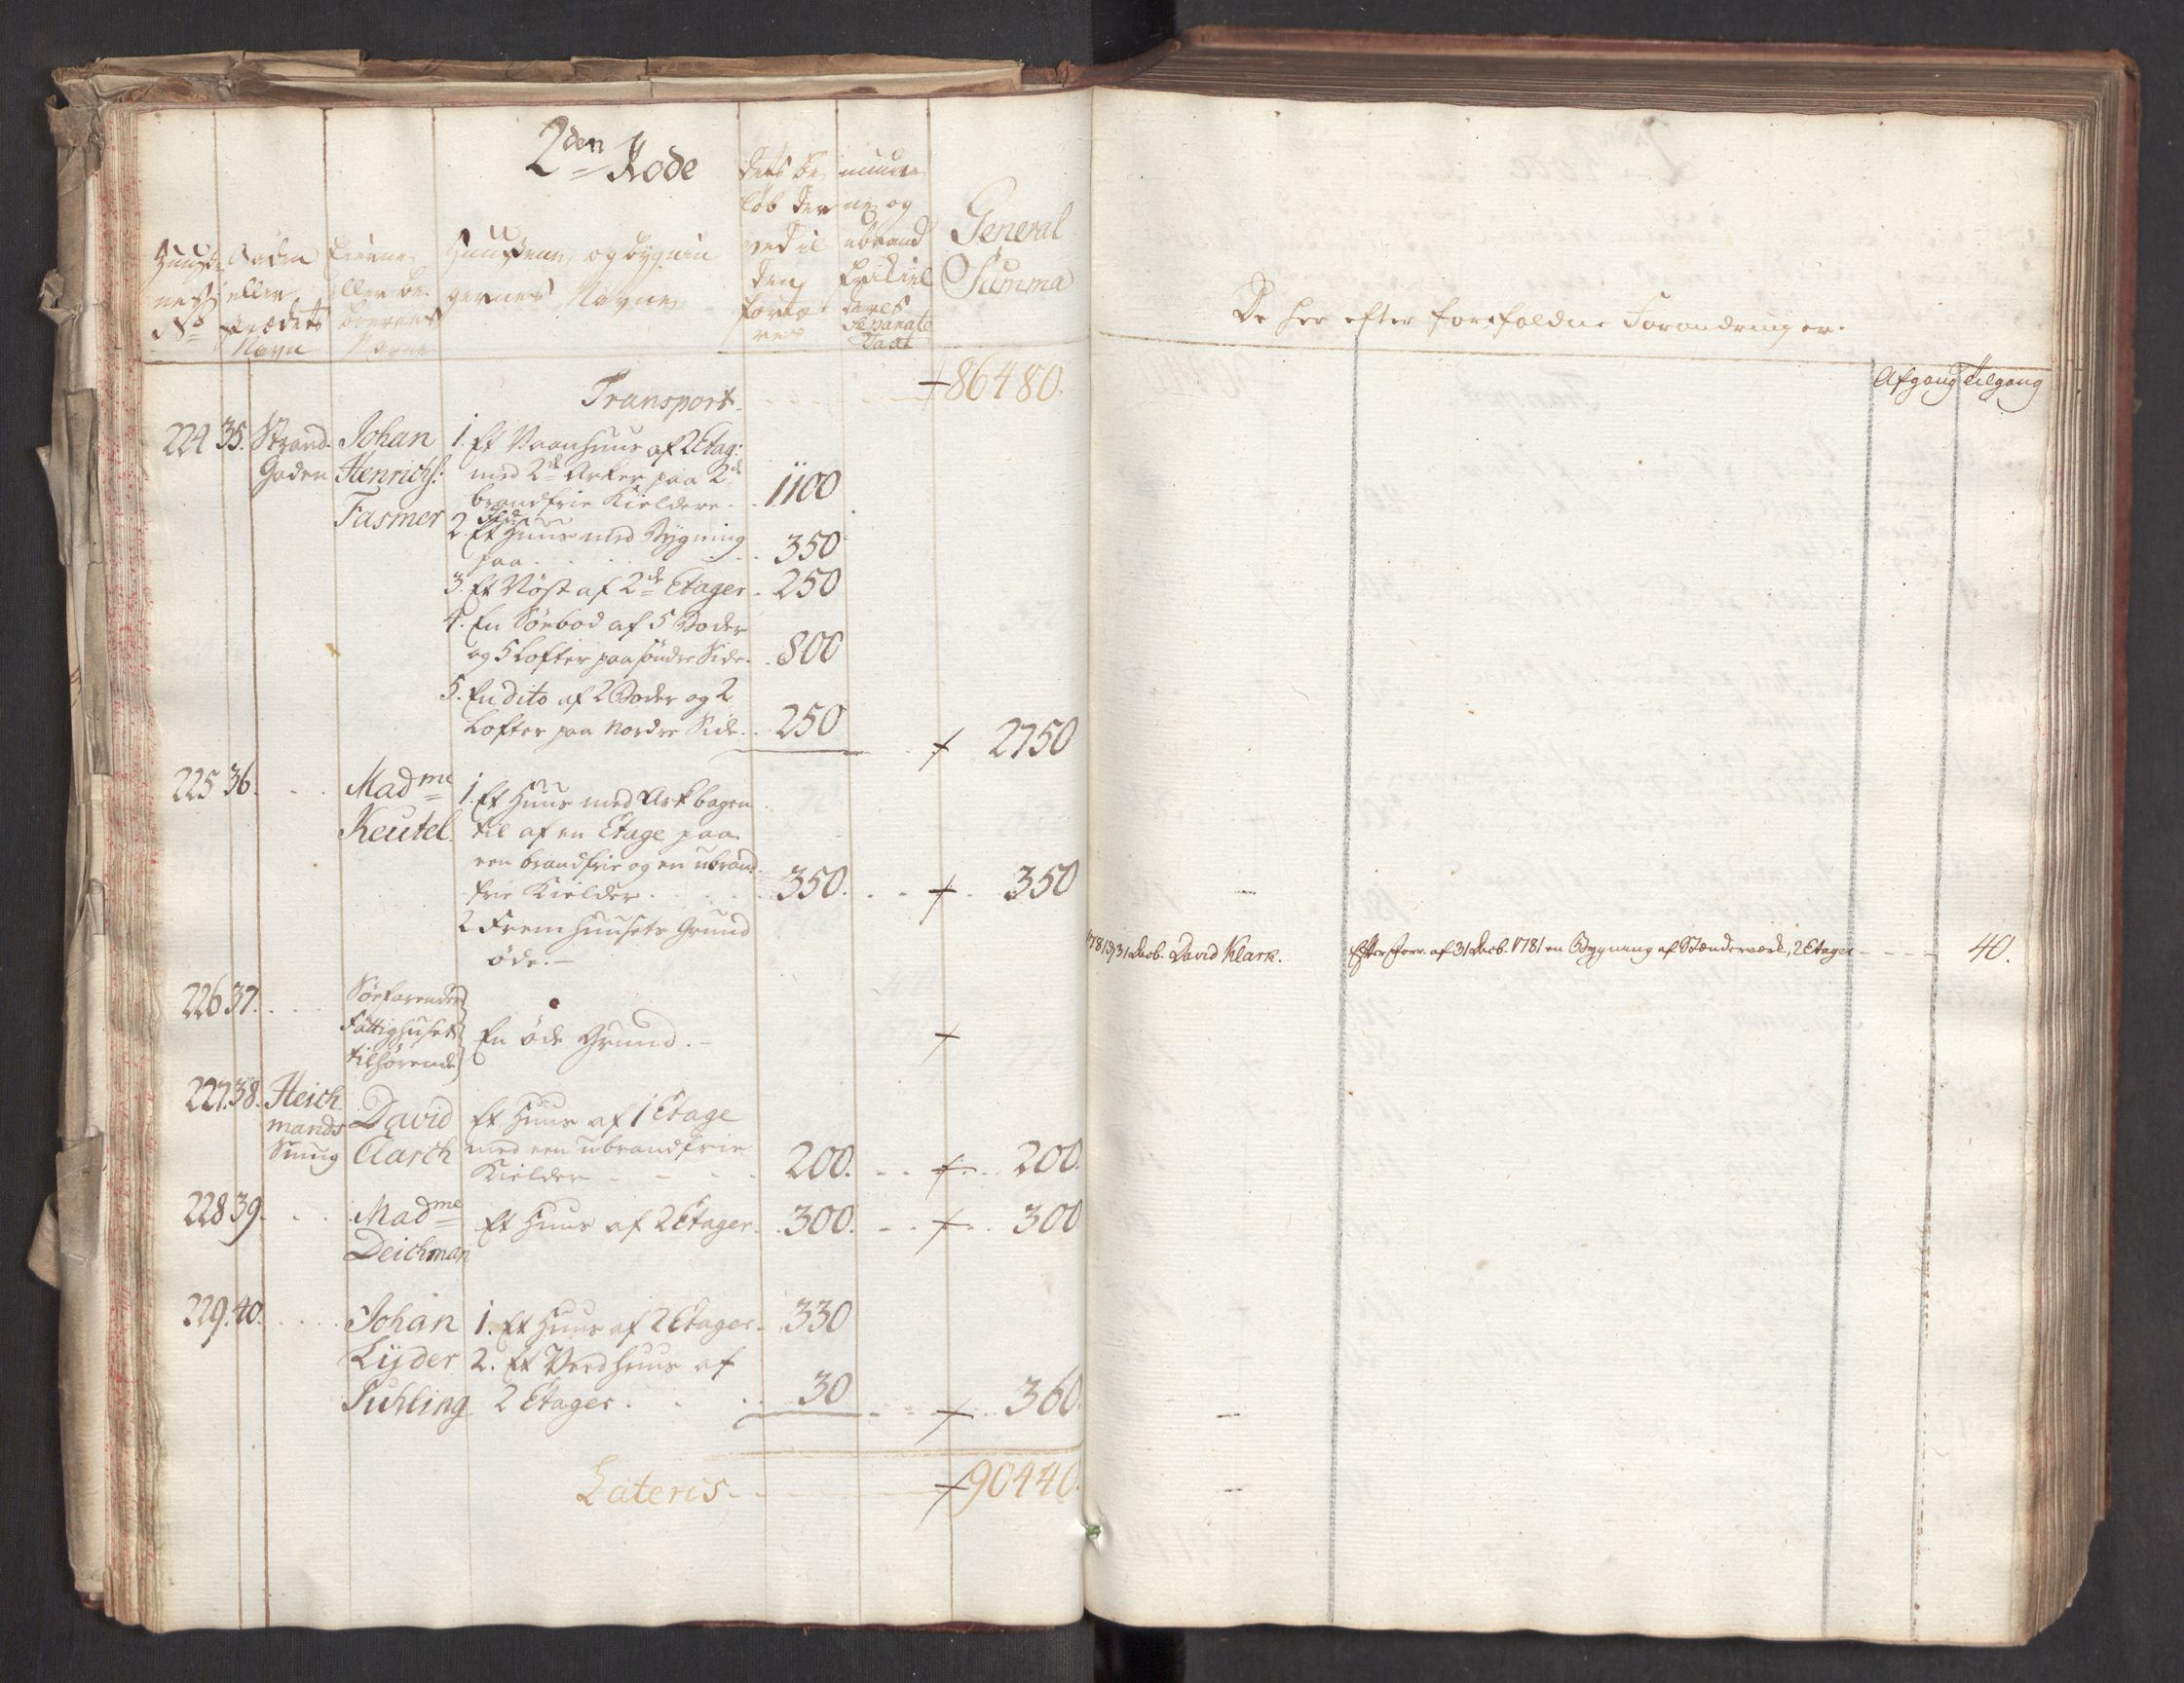 2den Rode
Huuse- nes No
Gaden eller Strædets Navn
Eierne eller be- boernes Navne
Huusene og bygnin- gernes Navne
General Summa
Transport 86480.
224 35. Strand- Johan 1. Et Vaanhuus af 2 Etag:
Gaden Henrichs: med 2de Arker paa 2de
brandfrie Kieldere 1100
Fasmer 2. Et Huus med Bygning
paa 350
3. Et Nøst af 2de Etager 250
4. En Söebod af 5 Boder
og 5 Lofter paa söndre Side 800
5. En dito af 2 Boder og 2
Lofter paa Nordre Side 250 2750
225 36. Madme 1. Et Huus med Ark bagen
Keutel til af en Etage paa
een brandfrie og en ubrand-
frie Kielder 350. 350
2 Frem Huusets Grund
öde.
226 37. Söefarendes
Fattighuset En öde Grund.
tilhörende
227. 38. Heich- David Et Huus af 1 Etage
mands Clarck med een ubrandfrie
Smug Kielder 200. 200.
228 39. Madme Et Huus af 2 Etager. 300. 300
Deichman
229. 40. Johan 1. Et Huus af 2 Etager. 330
Lyder 2. Et Vedhuus af
Suhling 2 Etager 30 360.
Lateris 90440.
De her efter forefaldne Forandringer.
Afgang Tilgang
1781 d. 31 Decb. David Klark. Efter Forr. af 31 Decb. 1781 en Bygning af Stænderværk, 2 Etager 40.